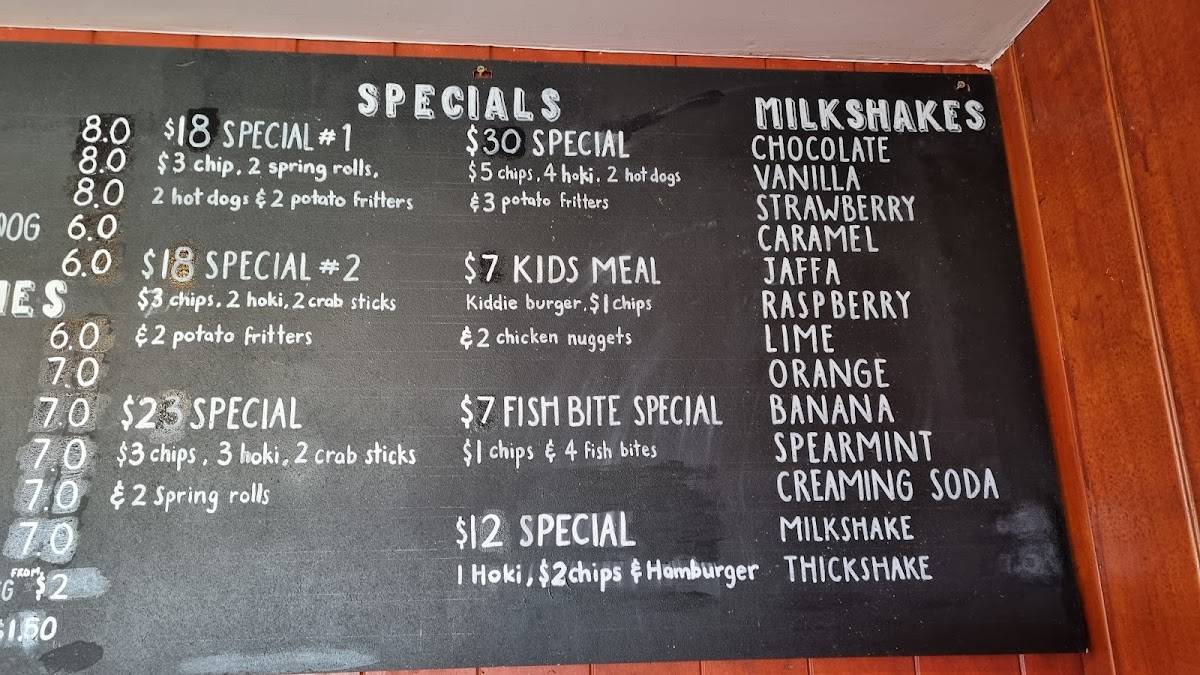 8.0
8.0
8.0
DOG 6.0
6.0
IES
6.0
7.0
7.0
7.0
7.0
7.0
FROM
G $2
$1.50
SPECIALS
$18 SPECIAL #1
$3 chip, 2 spring rolls,
2 hot dogs & 2 potato fritters
$18 SPECIAL #2
$3 chips, 2 hoki, 2 crab sticks
& 2 potato fritters
$23 SPECIAL
$3 chips, 3 hoki, 2 crab sticks
& 2 Spring rolls
$30 SPECIAL
$5 chips, 4 hoki, 2 hot dogs
& 3 potato fritters
$7 KIDS MEAL
Kiddie burger, $1 chips
& 2 chicken nuggets
$7 FISH BITE SPECIAL
$1 chips & 4 fish bites
$12 SPECIAL
1 Hoki, $2 chips & Hamburger
MILKSHAKES
CHOCOLATE
VANILLA
STRAWBERRY
CARAMEL
JAFFA
RASPBERRY
LIME
ORANGE
BANANA
SPEARMINT
CREAMING SODA
MILKSHAKE
THICKSHAKE